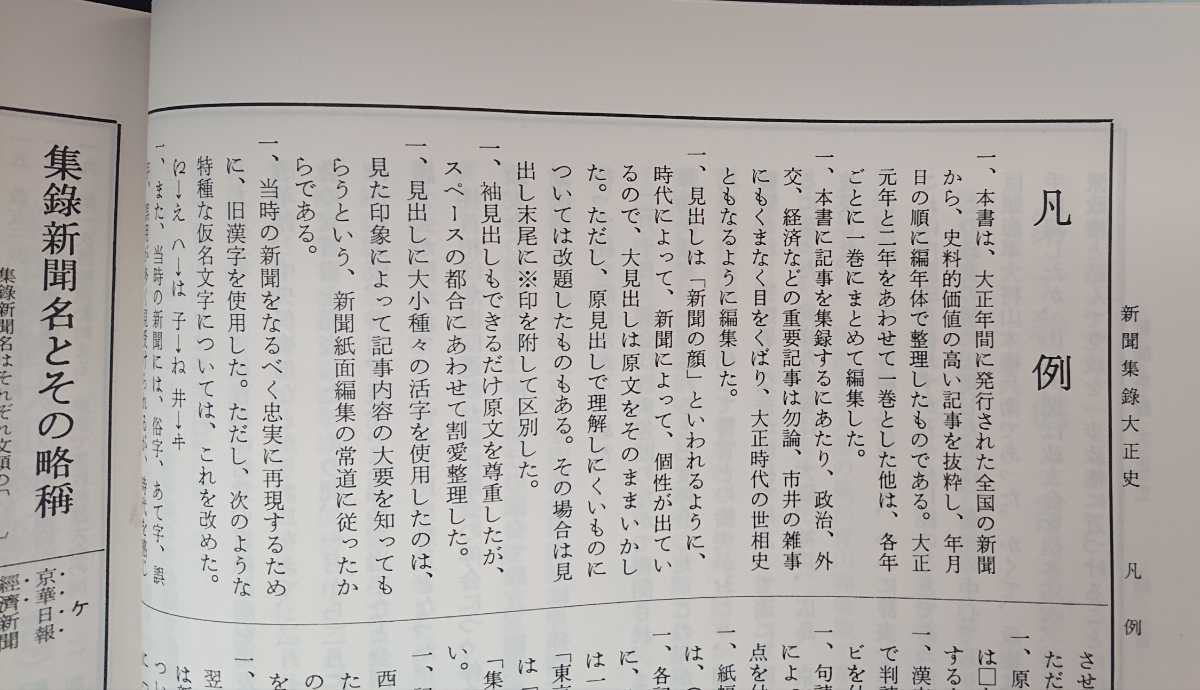 新聞集錄大正史　凡　例
凡　例
一、本書は、大正年間に発行された全国の新聞
から、史料的価値の高い記事を抜粋し、年月
日の順に編年体で整理したものである。大正
元年と二年をあわせて一巻とした他は、各年
ごとに一巻にまとめて編集した。
一、本書に記事を集録するにあたり、政治、外
交、経済などの重要記事は勿論、市井の雑事
にもくまなく目をくばり、大正時代の世相史
ともなるように編集した。
一、見出しは「新聞の顔」といわれるように、
時代によって、新聞によって、個性が出てい
るので、大見出しは原文をそのままいかし
た。ただし、原見出しで理解しにくいものに
ついては改題したものもある。その場合は見
出し末尾に※印を附して区別した。
一、袖見出しもできるだけ原文を尊重したが、
スペースの都合にあわせて割愛整理した。
一、見出しに大小種々の活字を使用したのは、
見た印象によって記事内容の大要を知っても
らうという、新聞紙面編集の常道に従ったか
らである。
一、当時の新聞をなるべく忠実に再現するため
に、旧漢字を使用した。ただし、次のような
特種な仮名文字については、これを改めた。
→え　ハ→は　子→ね　井→ヰ
一、また、当時の新聞には、俗字、あて字、誤
させ
ただ
一、原
は□
する
一、漢
で判
ビを
一、句
によ
点を
一、紙
は、
一、各
に、
は一
「東
は「
「集
い。
一、
西
た
の
一、
翌
は
集錄新聞名とその略稱
集錄新聞名はそれぞれ文頭の
ケ
京華日報
經濟新聞